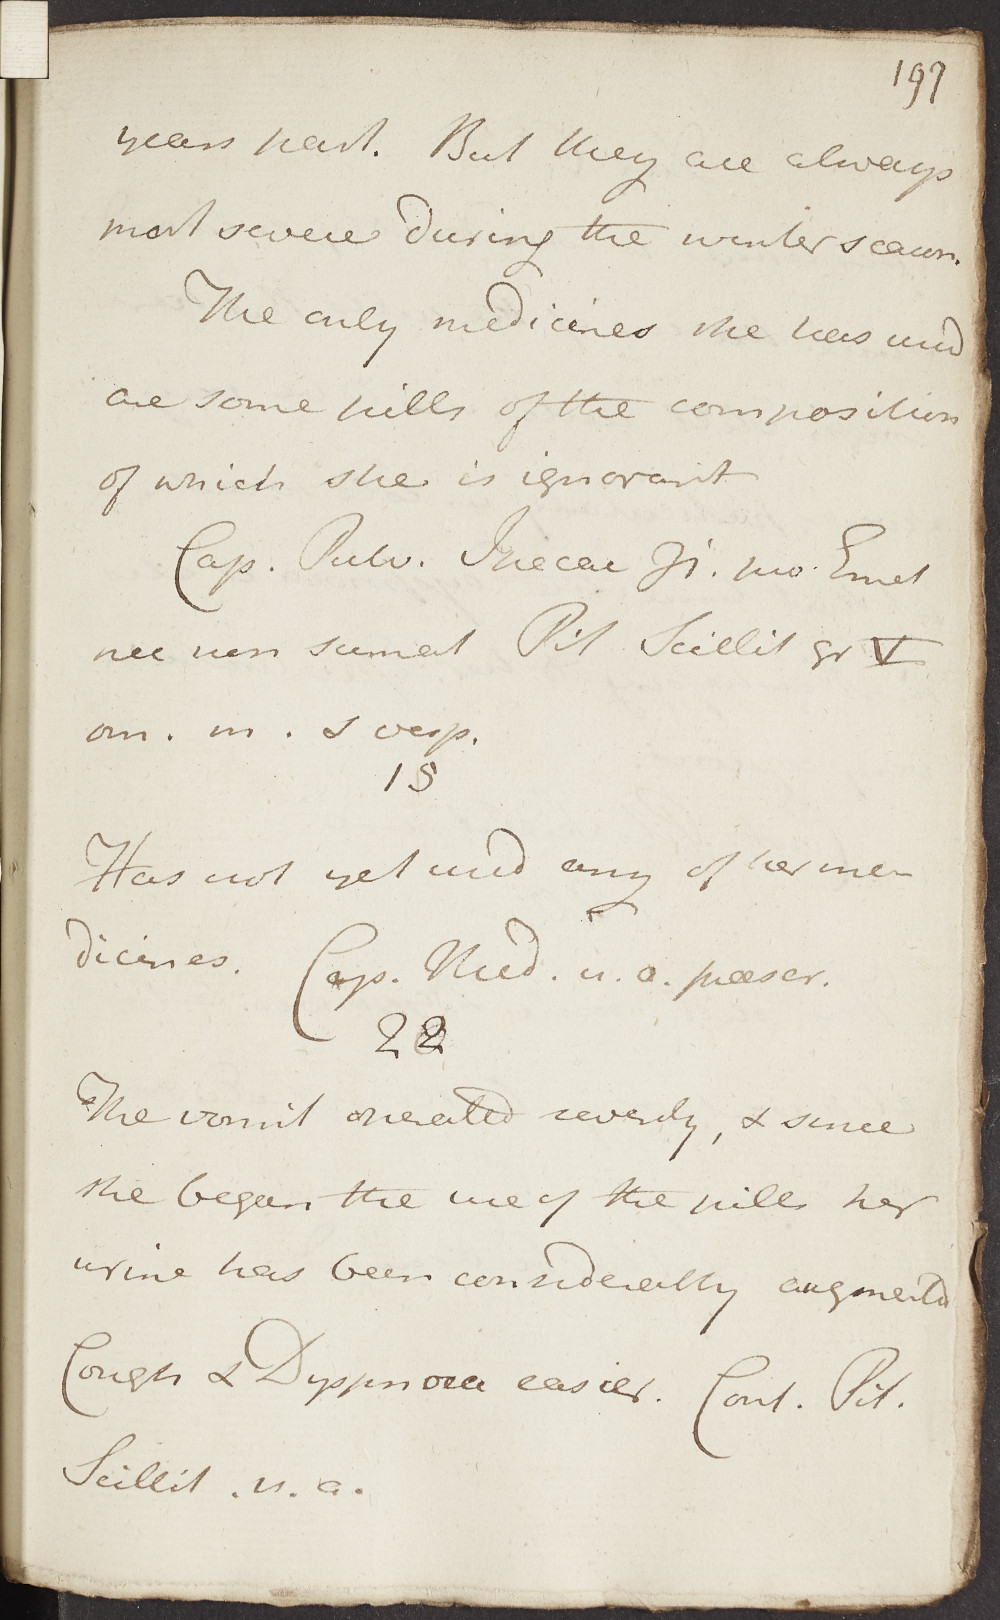 197
years past. But they are always
most severe during the winter season.
The only medicines she has used
are some pills of the composition
of which she is ignorant
Cap. Pulv. Ipecac ʒi. pro. Emet
nec non sumat Pil Scillit gr V
om. m. & vesp.
15
Has not yet used any of her me-
dicines. Cap. Med. u. a. præscr.
22
The vomit operated severely, & since
she began the use of the pills her
urine has been considerably augmented
Cough & Dyspnoea easier. Cont. Pil.
Scillit. u. a.